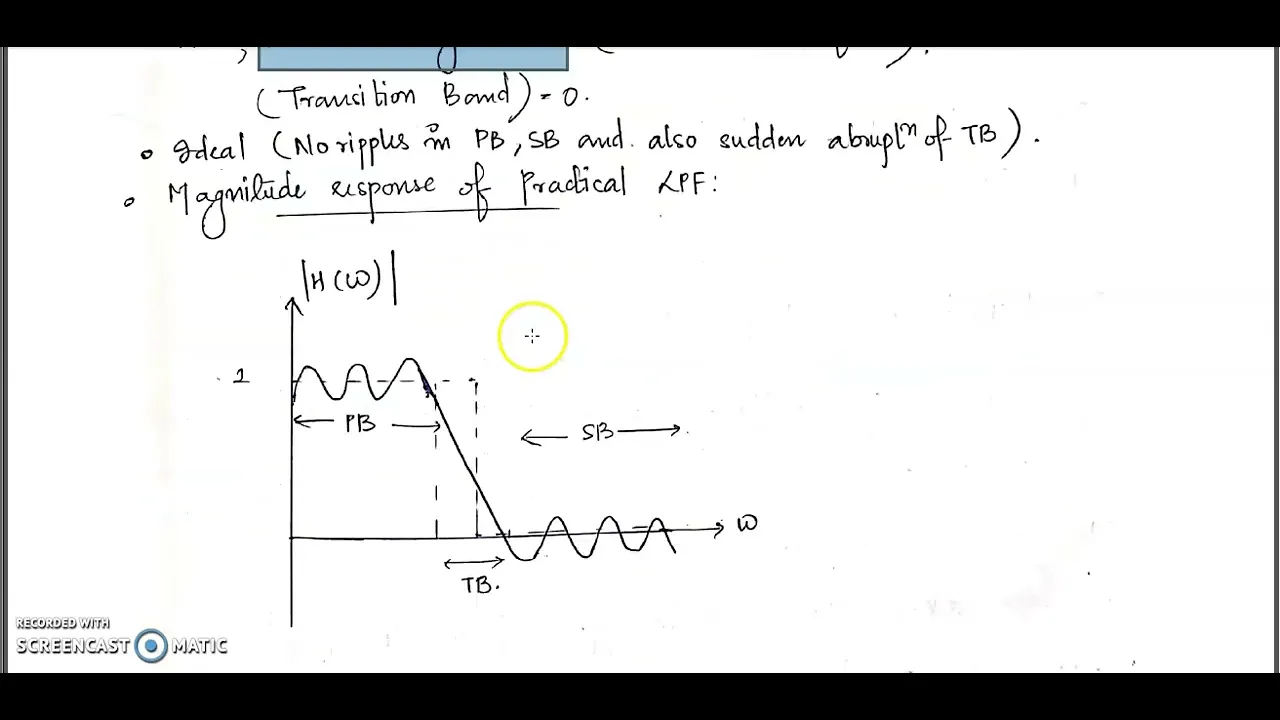 (Transition Band) = 0.
• Ideal (No ripples in PB, SB and also sudden abruptⁿ of TB).
• Magnitude response of Practical LPF:
|H(ω)|
1
PB
SB
ω
TB.
RECORDED WITH
SCREENCAST MATIC